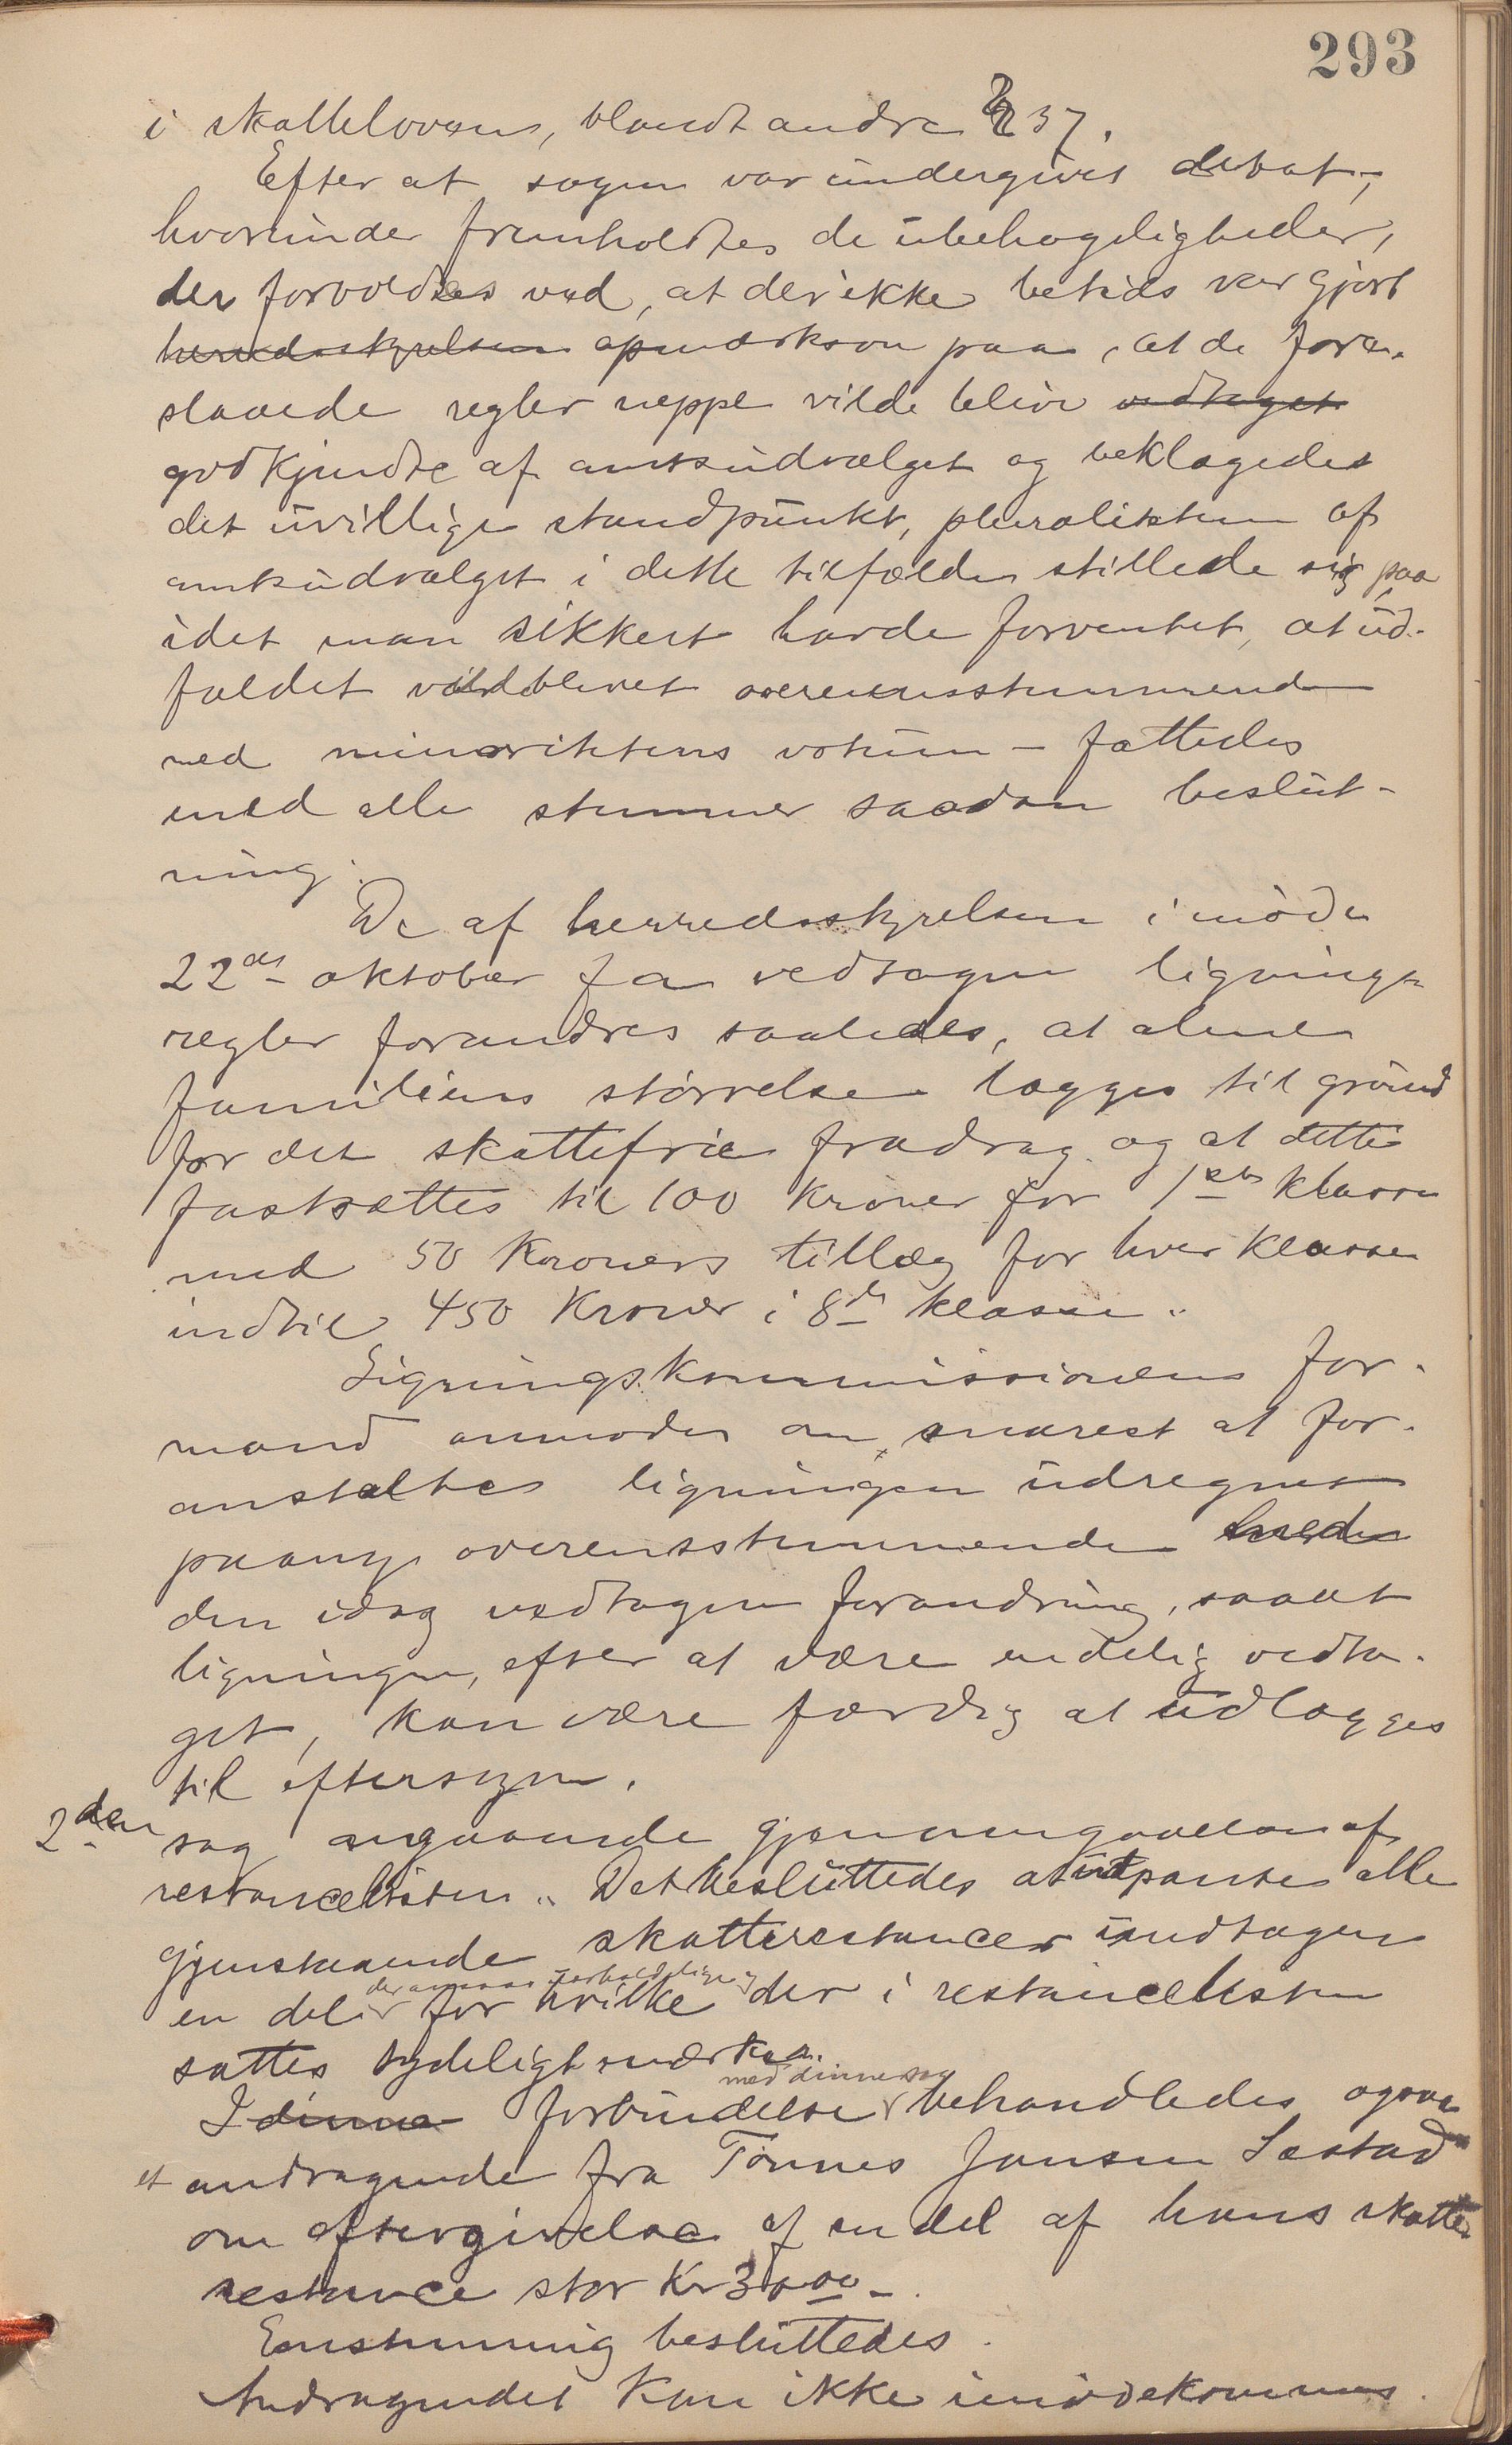 293
i skatteloven, blandt andre § 37.
Efter at sagen var undergivet debat,
hvorunder fremholdtes de ubehageligheder,
der forvoldtes ved, at der ikke betids var gjort
herredsstyrelsen opmærksom paa, at de fore-
slaaede regler neppe vilde blive vedtaget
godkjendte af amtsudvalget og beklagedes
det uvillige standpunkt, pluraliteten af
amtsudvalget i dette tilfælde stillede sig paa
idet man sikkert havde forventet, at ud-
faldet vilde blevet overensstemmende
med minoritetens votum – fattedes
med alle stemmer saadan beslut-
ning:
De af herredsstyrelsen i møde
22de oktober f a vedtagne lignings-
regler forandres saaledes, at alene
familiens størrelse lægges til grund
for det skattefrie fradrag og at dette
fastsættes til 100 kroner for 1ste klasse
med 50 Kroners tillæg for hver klasse
indtil 450 Kroner i 8de klasse."
Ligningskommissionens for-
mand anmodes om snarest at for-
anstaltes ligningen udregnet
paany overensstemmende med
den idag vedtagne forandring, saaat
ligningen, efter at være endelig vedta-
get, kan være færdig at udlægges
til eftersyn.
2den sag angaaende gjennemgaaelse af
restancelisten. Det besluttedes at udpante alle
gjenstaaende skatterestancer undtagen
en del for hvilke der i restancelisten
sattes tydeligt mærke.
med denne sag
I denne forbindelse behandledes ogsaa
et andragende fra Tønnes Jansen Sæstad
om eftergivelse af en del af hans skatte
restance stor Kr
Enstemmig besluttedes.
Andragendet kan ikke imødekommes.